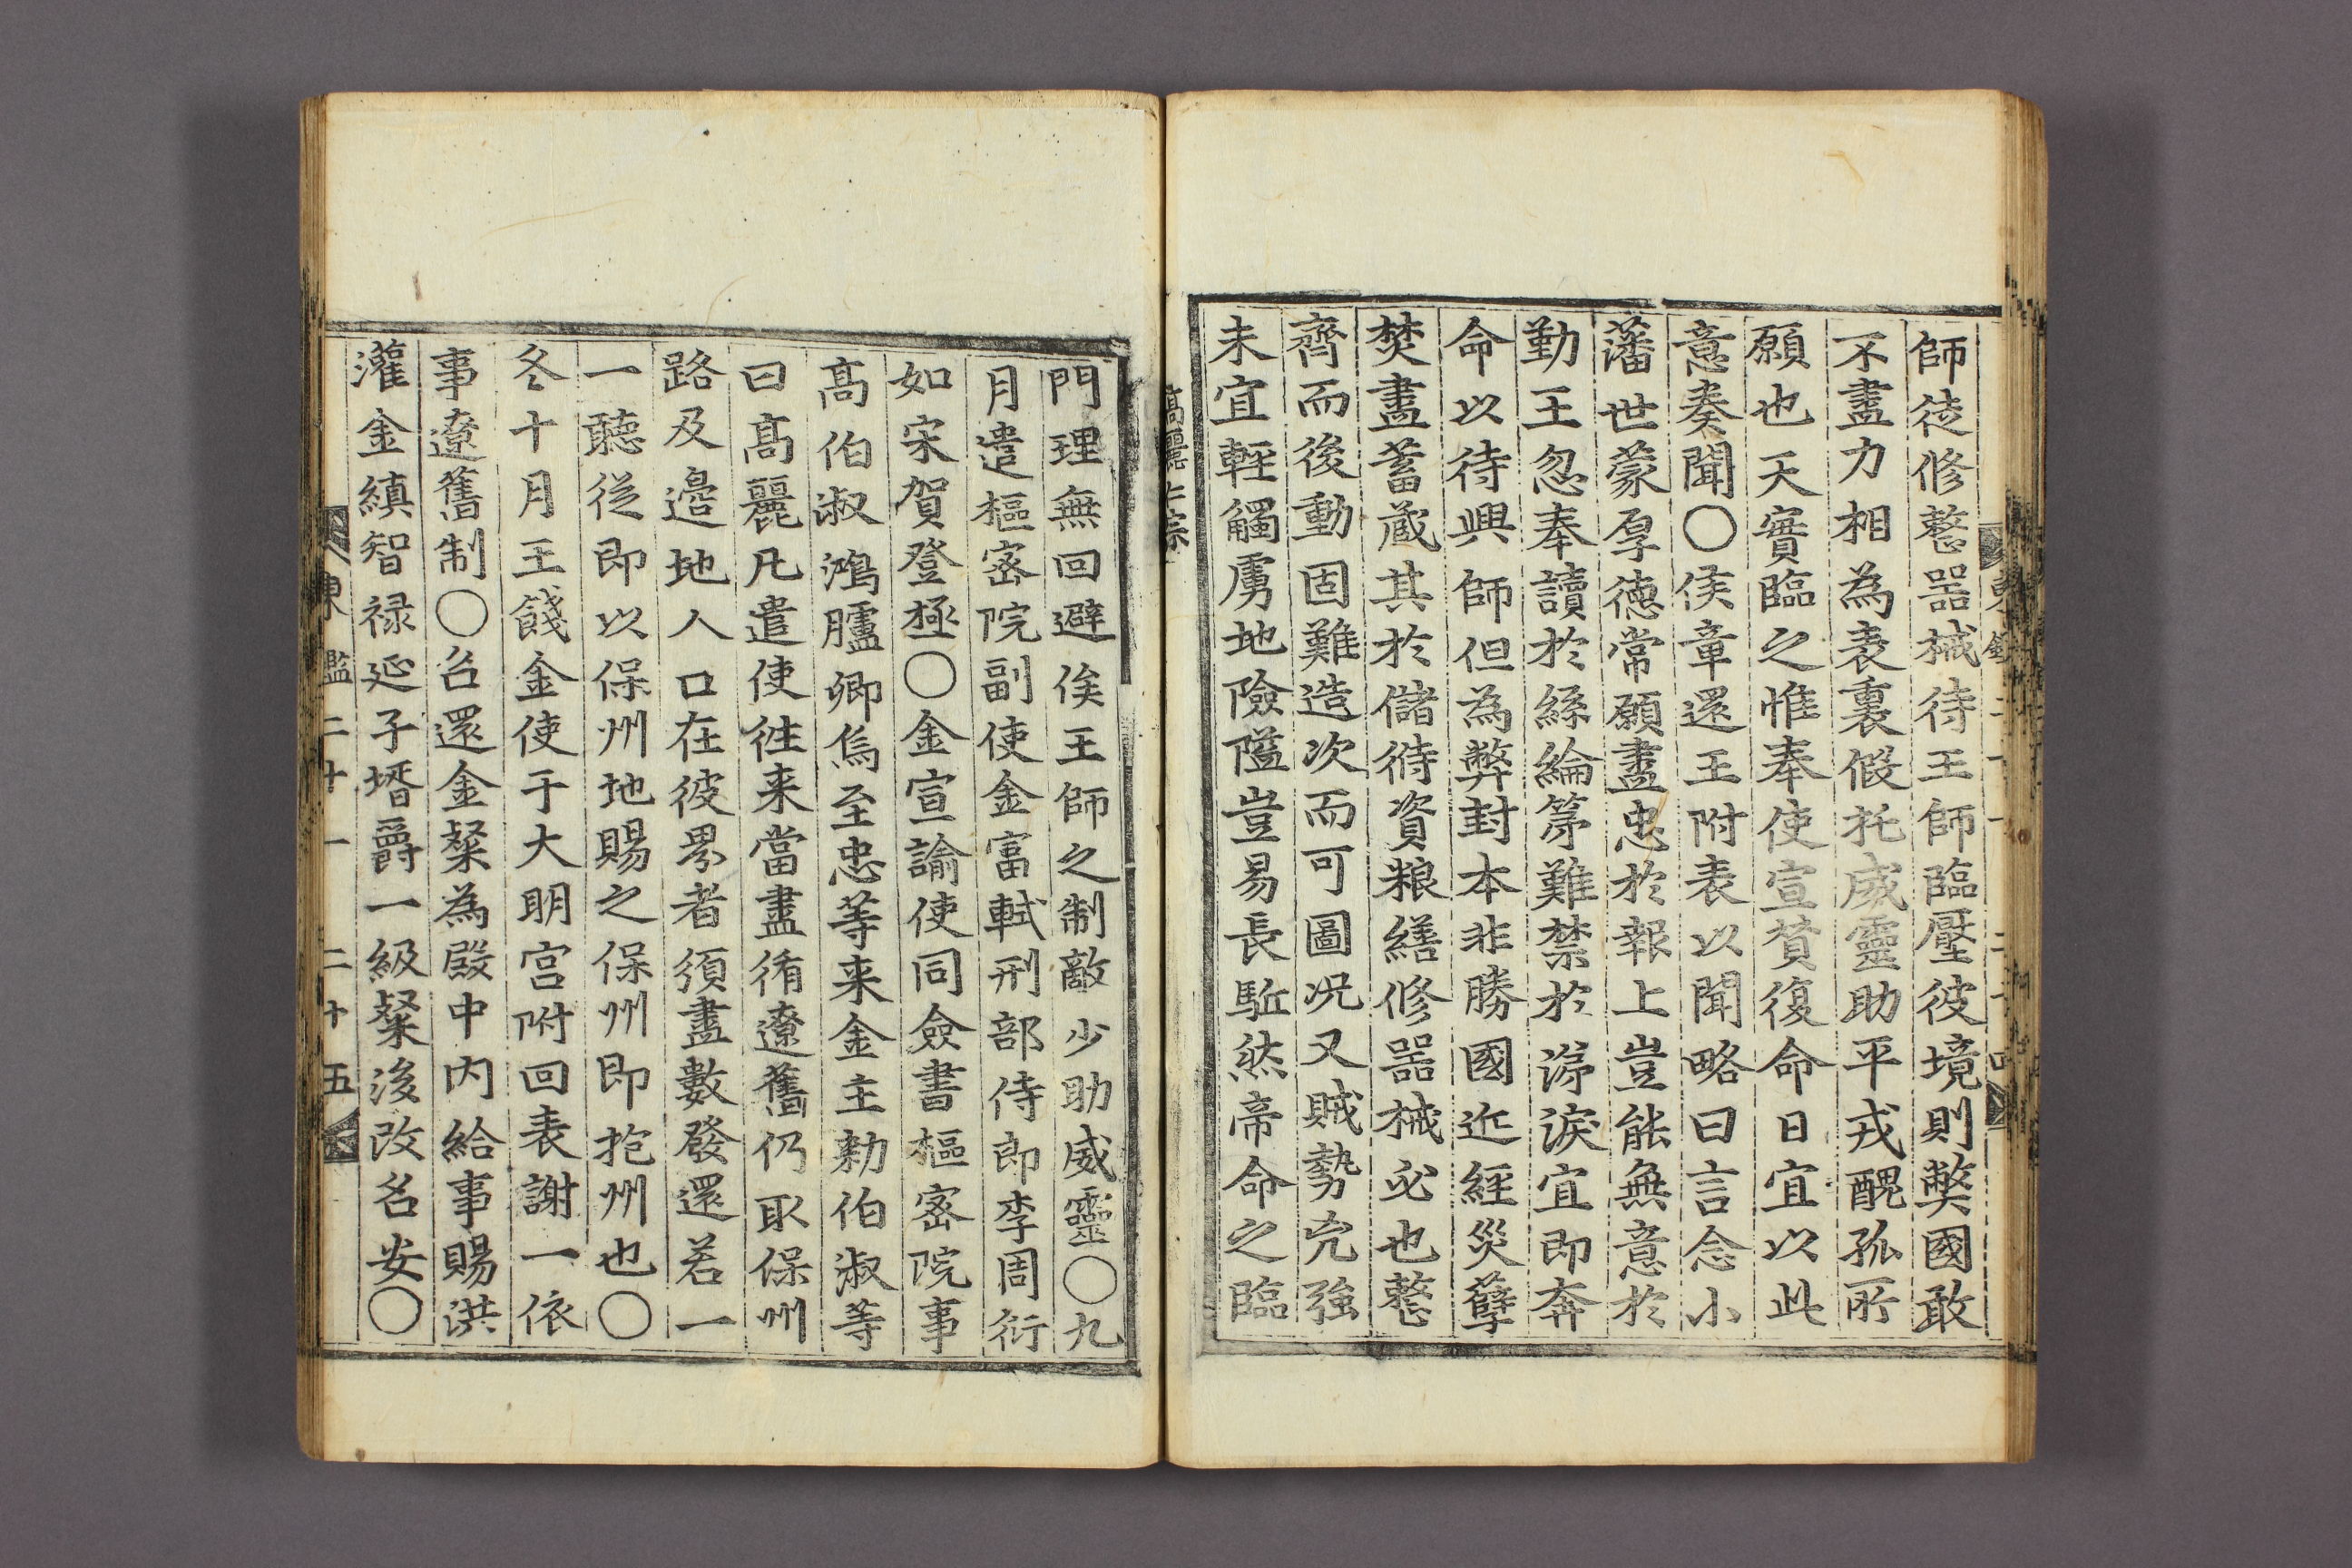 師徒修整器械待王師臨壓彼境則獘國敢
不盡力相為表裏假托威靈助平戎醜孤所
願也天實臨之惟奉使宣賛復命日宜以此
意奏聞○侯章還王附表以聞略曰言念小
藩世蒙厚德常願盡忠於報上豈能無意於
勤王忽奉讀於絲綸苐難禁於涕淚宜即奔
命以待興師但為弊封本非勝國近經災孽
焚盡蓄蔵其於儲偫資粮繕修器械必也整
齊而後動固難造次而可圖况又賊勢完強
未宜輕觸虜地險隘豈易長駈然帝命之臨
高麗仁宗
門理無回避俟王師之制敵少助威靈○九
月遣樞密院副使金富軾刑部侍郎李周衍
如宋賀登極○金宣諭使同僉書樞密院事
髙伯淑鴻臚卿烏至忠等来金主勅伯淑等
曰髙麗凡遣使徃来當盡循遼舊仍取保州
路及邉地人口在彼界者須盡數發還若一
一聽從即以保州地賜之保州即抱州也○
冬十月王餞金使于大明宫附回表謝一依
事遼舊制○召還金粲為殿中内給事賜洪
灌金縝智禄延子壻爵一級粲後改名安○
東鑑二十一 二十五